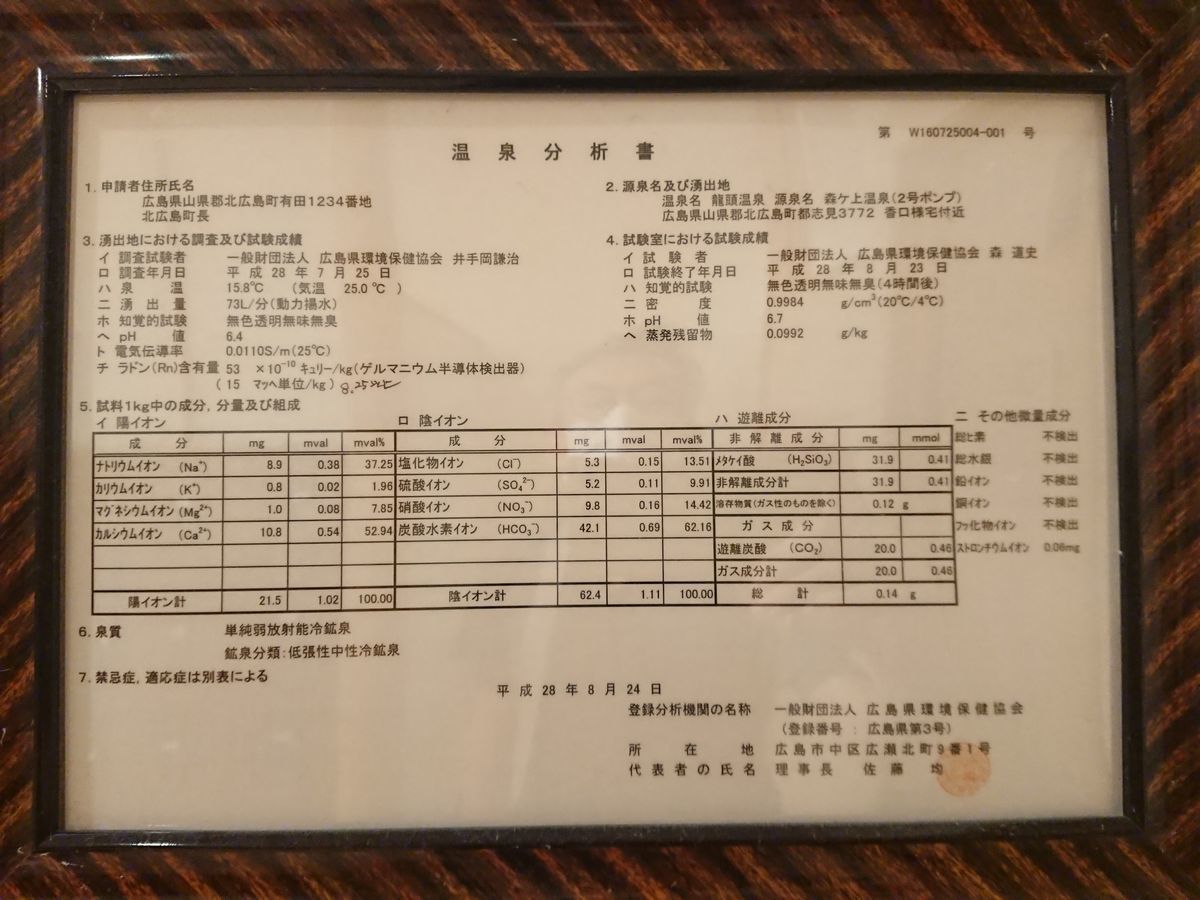 第 W160725004-001 号
温泉分析書
1. 申請者住所氏名
広島県山県郡北広島町有田1234番地
北広島町長
2. 源泉名及び湧出地
温泉名 龍頭温泉 源泉名 森ケ上温泉(2号ポンプ)
広島県山県郡北広島町都志見3772 香口様宅付近
3. 湧出地における調査及び試験成績
イ 調査試験者 一般財団法人 広島県環境保健協会 井手岡謙治
ロ 調査年月日 平成 28 年 7 月 25 日
ハ 泉温 15.8℃ (気温 25.0 ℃ )
ニ 湧出量 73L/分(動力揚水)
ホ 知覚的試験 無色透明無味無臭
ヘ pH値 6.4
ト 電気伝導率 0.0110S/m(25℃)
チ ラドン(Rn)含有量 53 ×10⁻¹⁰ キュリー/kg(ゲルマニウム半導体検出器)
( 15 マッヘ単位/kg )
4. 試験室における試験成績
イ 試験者 一般財団法人 広島県環境保健協会 森 道史
ロ 試験終了年月日 平成 28 年 8 月 23 日
ハ 知覚的試験 無色透明無味無臭(4時間後)
ニ 密度 0.9984 g/cm³(20℃/4℃)
ホ pH値 6.7
ヘ 蒸発残留物 0.0992 g/kg
5. 試料1kg中の成分, 分量及び組成
イ 陽イオン
成分 mg mval mval%
ナトリウムイオン (Na⁺) 8.9 0.38 37.25
カリウムイオン (K⁺) 0.8 0.02 1.96
マグネシウムイオン (Mg²⁺) 1.0 0.08 7.85
カルシウムイオン (Ca²⁺) 10.8 0.54 52.94
陽イオン計 21.5 1.02 100.00
ロ 陰イオン
成分 mg mval mval%
塩化物イオン (Cl⁻) 5.3 0.15 13.51
硫酸イオン (SO₄²⁻) 5.2 0.11 9.91
硝酸イオン (NO₃⁻) 9.8 0.16 14.42
炭酸水素イオン (HCO₃⁻) 42.1 0.69 62.16
陰イオン計 62.4 1.11 100.00
ハ 遊離成分
非解離成分 mg mmol
メタケイ酸 (H₂SiO₃) 31.9 0.41
非解離成分計 31.9 0.41
溶存物質(ガス性のものを除く) 0.12 g
ガス成分
遊離炭酸 (CO₂) 20.0 0.46
ガス成分計 20.0 0.46
総計 0.14 g
ニ その他微量成分
総ヒ素 不検出
総水銀 不検出
鉛イオン 不検出
銅イオン 不検出
フッ化物イオン 不検出
ストロンチウムイオン 0.06mg
6. 泉質 単純弱放射能冷鉱泉
鉱泉分類:低張性中性冷鉱泉
7. 禁忌症, 適応症は別表による
平成 28 年 8 月 24 日
登録分析機関の名称 一般財団法人 広島県環境保健協会
(登録番号 : 広島県第3号)
所在地 広島市中区広瀬北町9番1号
代表者の氏名 理事長 佐藤 均